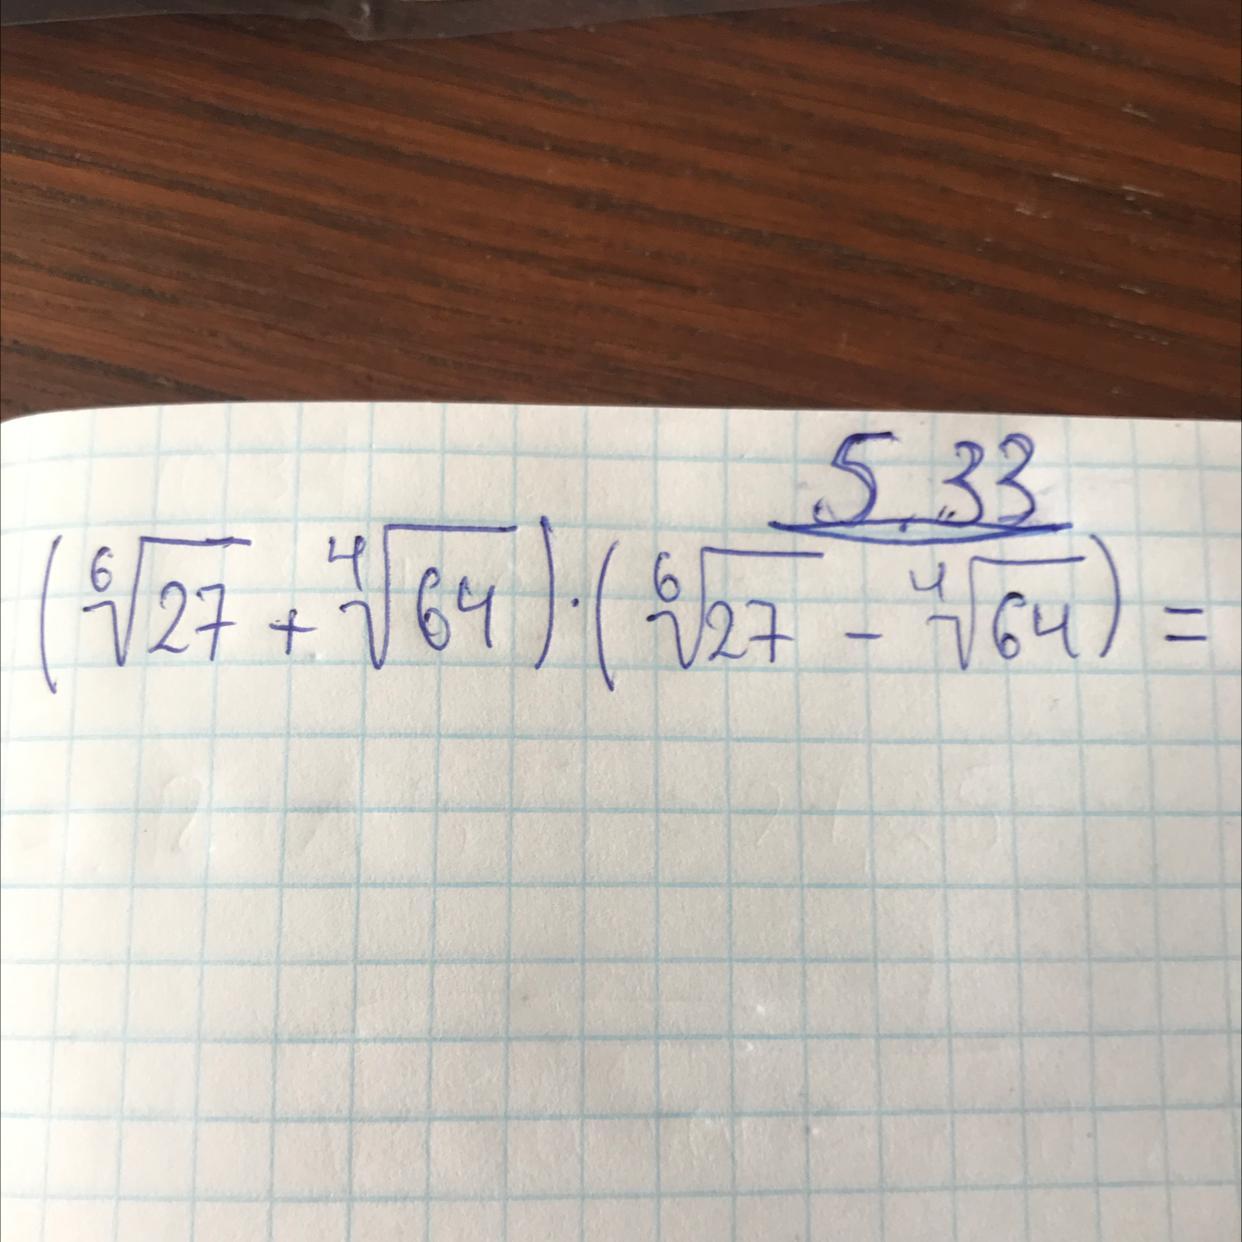 5.33
(⁶√27 + ⁴√64) · (⁶√27 − ⁴√64) =